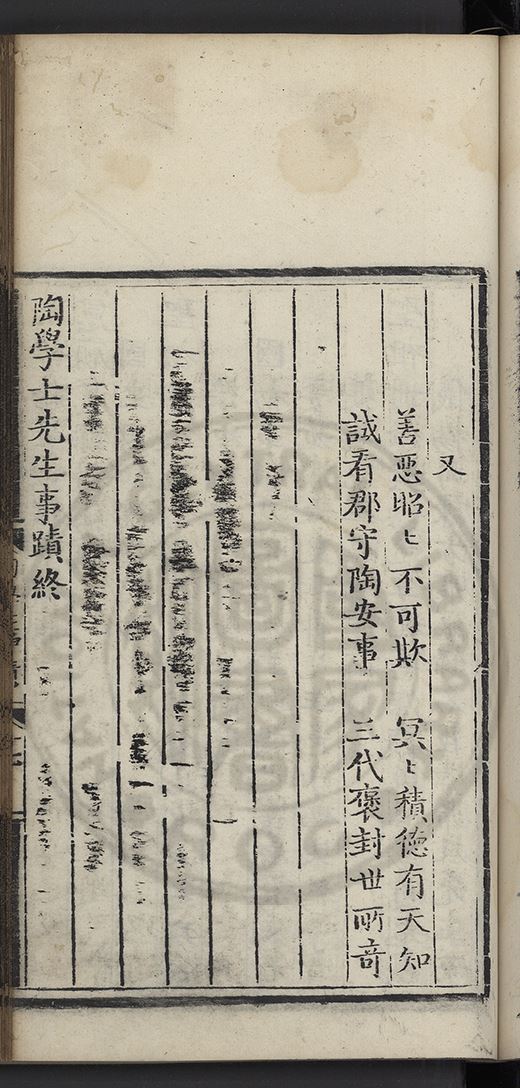 又
善惡昭〻不可欺　冥〻積德有天知
試看郡守陶安事　三代褒封世所奇
陶學士先生事蹟終